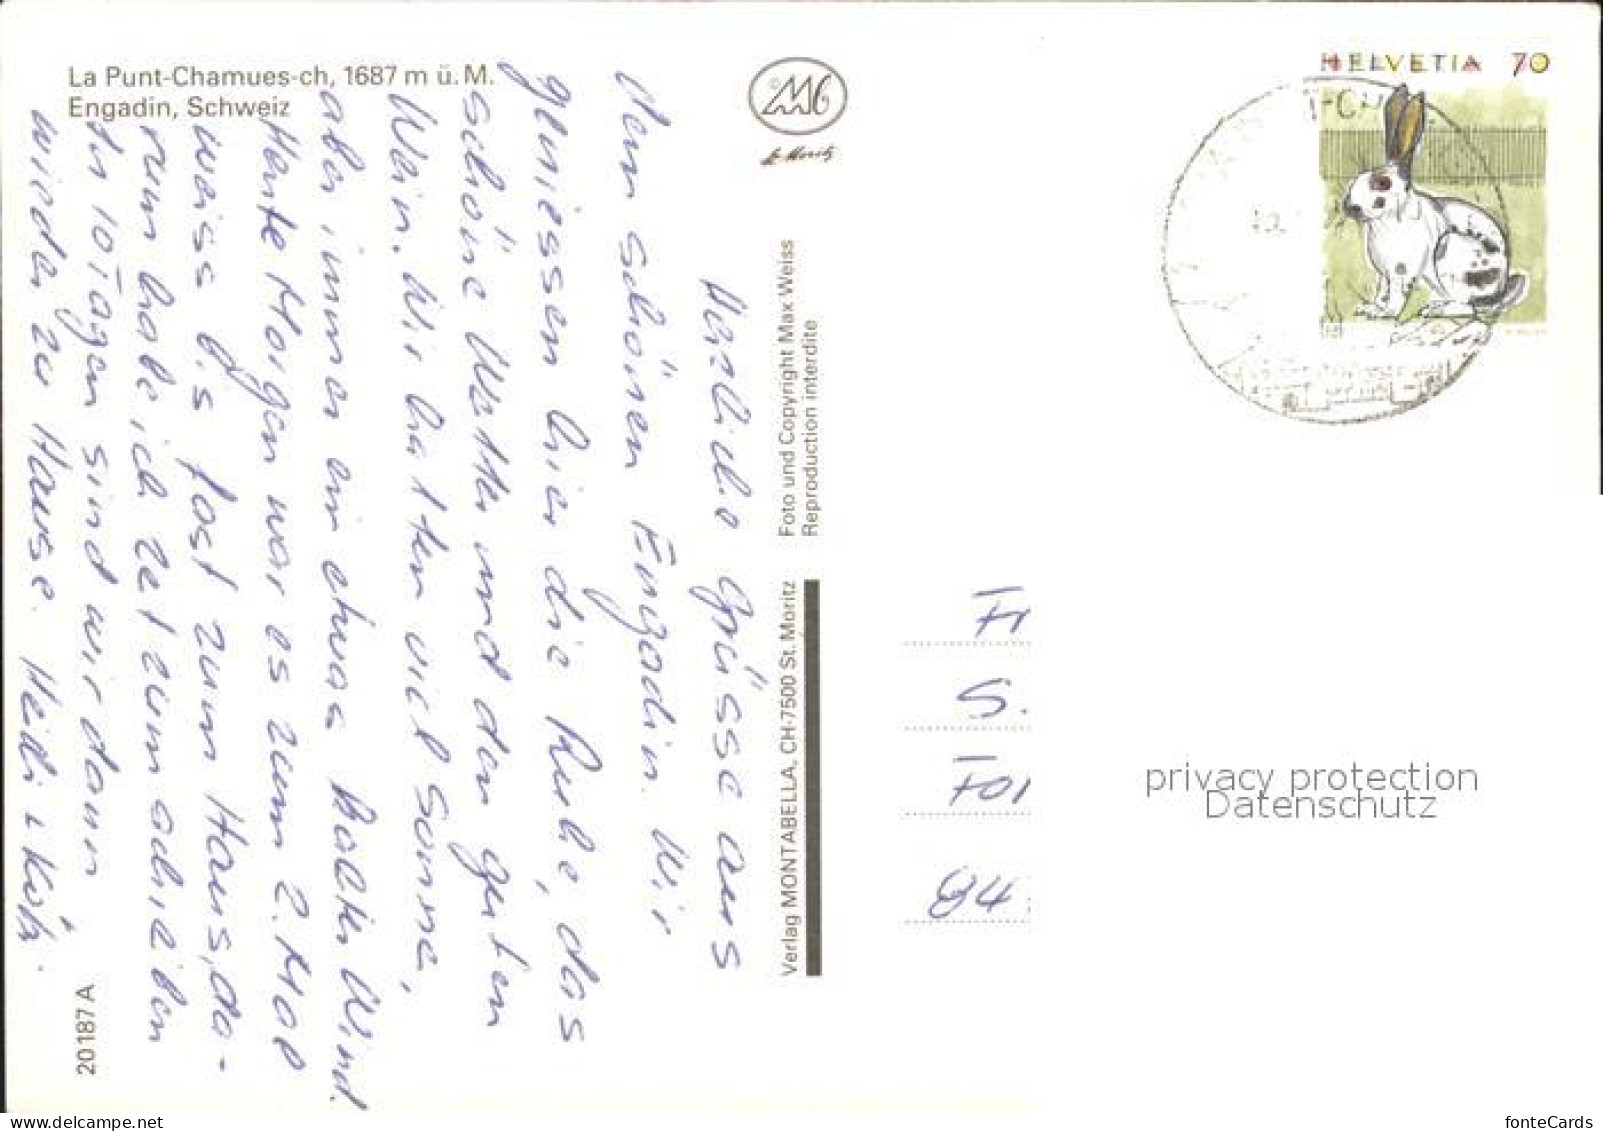 La Punt-Chamues-ch, 1687 m ü. M.
Engadin, Schweiz
Herzliche Grüsse aus
dem schönen Engadin. Wir
geniessen hier die Ruhe, das
schöne Wetter und den guten
Wein. Wir hatten viel Sonne,
aber immer ein etwas kalter Wind.
Heute Morgen war es zum 2. Mal
weiss bis fast zum Haus, da-
rum habe ich Zeit zum schreiben
In 10 Tagen sind wir dann
wieder zu Hause. Heidi +
20187 A
Verlag MONTABELLA, CH-7500 St. Moritz
Foto und Copyright Max Weiss
Reproduction interdite
St. Moritz
HELVETIA 70
S.
84
privacy protection
Datenschutz
fonteCards